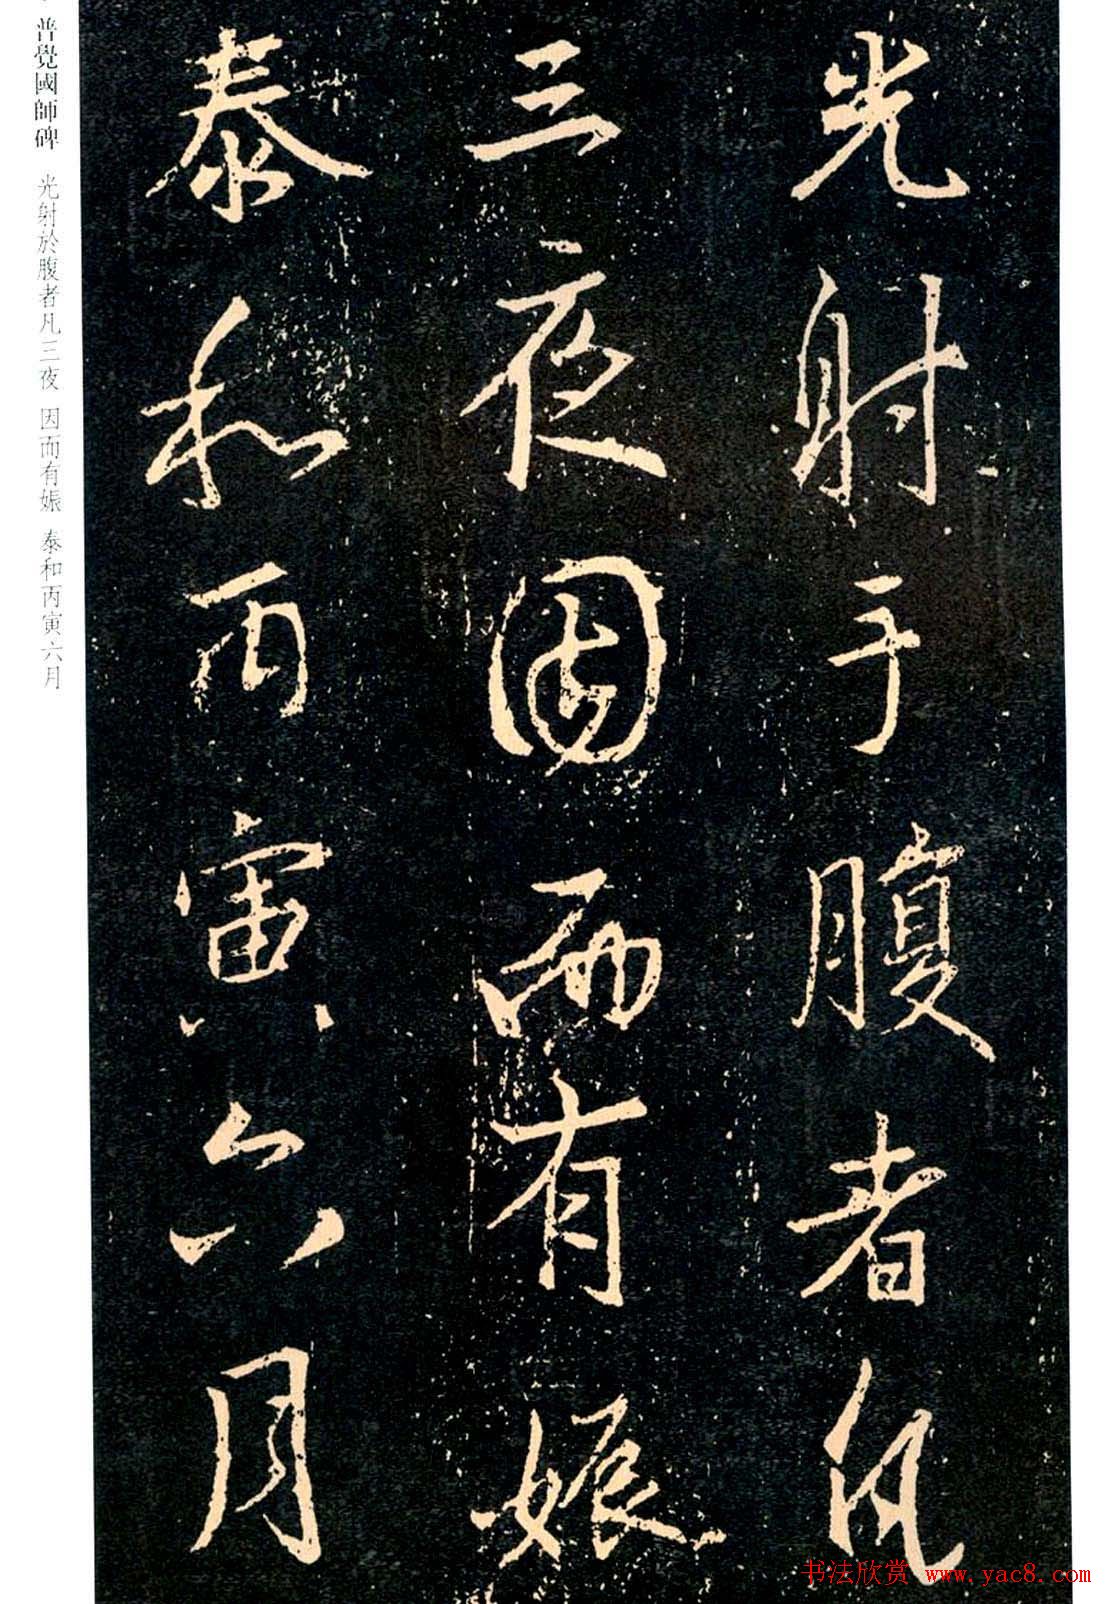 光射于腹者凡
三夜因而有娠
泰和丙寅六月
普覺國師碑 光射於腹者凡三夜 因而有娠 泰和丙寅六月
书法欣赏 www.yac8.com